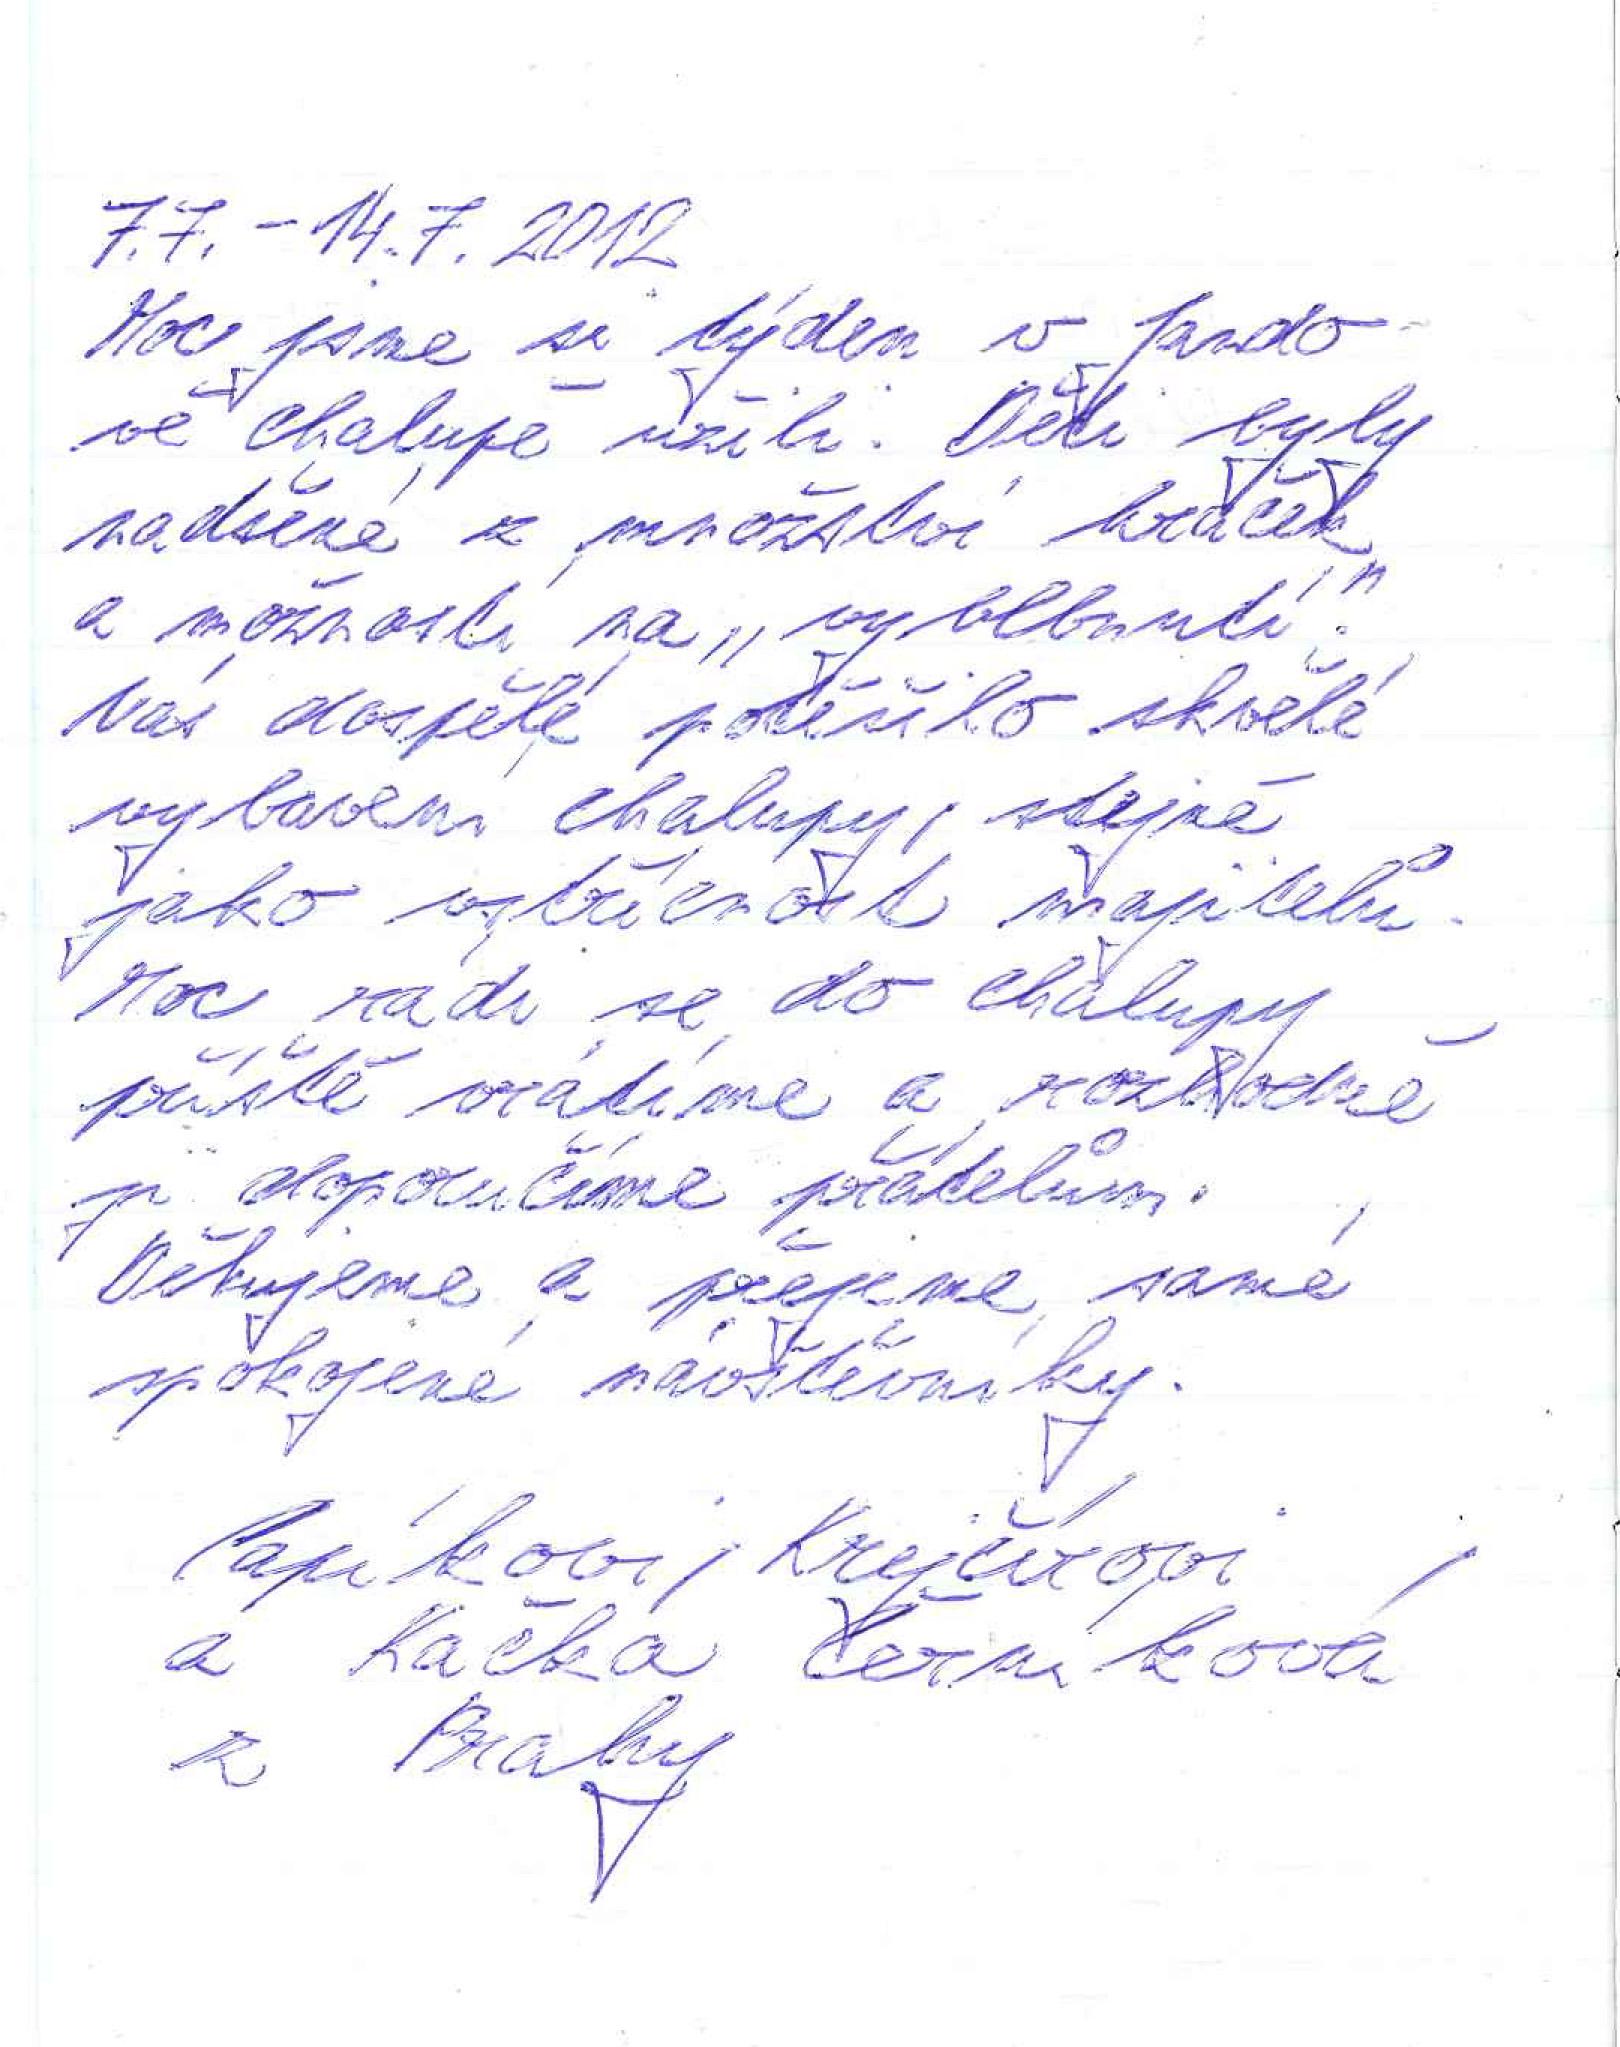 7.7. - 14.7. 2012
Moc jsme si týden v Jando-
vě chalupě užili. Děti byly
nadšené z množství hraček
a možností na „vyblbnutí".
Nás dospělé potěšilo skvělé
vybavení chalupy, stejně
jako vstřícnost majitelů.
Moc rádi se do chalupy
příště vrátíme a rozhodně
ji doporučíme přátelům.
Děkujeme a přejeme samé
spokojené návštěvníky.
Papíkovi, Krejčírovi
a Kačka Čermáková
z Prahy